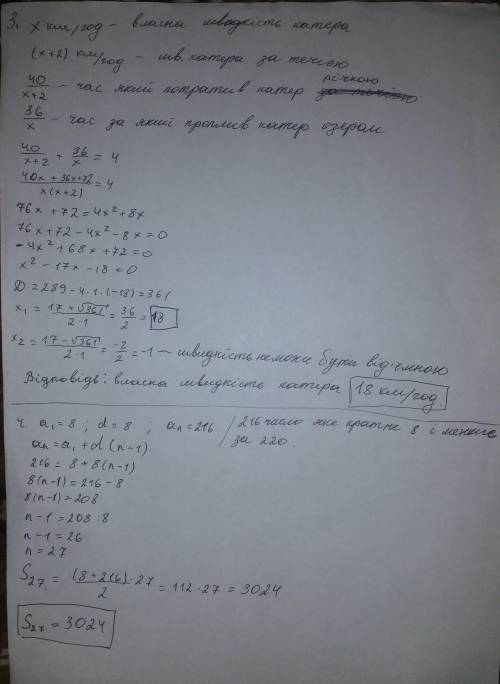 3. х км/год - власна швидкість катера
(х+2) км/год - шв. катера за течією
40/(х+2) - час який потратив катер річкою
36/х - час за який проплив катер озером
40/(х+2) + 36/х = 4
(40х + 36х+72)/(х(х+2)) = 4
76х + 72 = 4х² + 8х
76х + 72 - 4х² - 8х = 0
-4х² + 68х + 72 = 0
х² - 17х - 18 = 0
D = 289 - 4·1·(-18) = 361
х₁ = (17 + √361)/(2·1) = 36/2 = 18
х₂ = (17 - √361)/(2·1) = -2/2 = -1 — швидкість не може бути від'ємною
Відповідь: власна швидкість катера 18 км/год.
4. a₁ = 8 ; d = 8 ; aₙ = 216 / 216 число яке кратне 8 і менше
за 220.
aₙ = a₁ + d(n-1)
216 = 8 + 8(n-1)
8(n-1) = 216 - 8
8(n-1) = 208
n-1 = 208 : 8
n-1 = 26
n = 27
S₂₇ = (8+216)·27/2 = 112·27 = 3024
S₂₇ = 3024